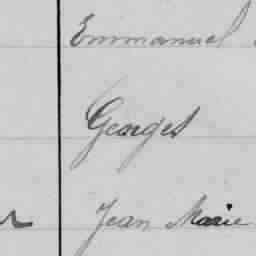 Emmanuel
Georges
Jean Marie